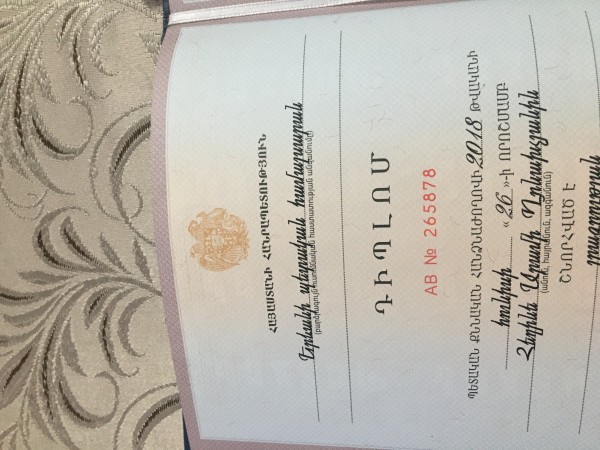 ՀԱՅԱՍՏԱՆԻ ՀԱՆՐԱՊԵՏՈՒԹՅՈՒՆ
Երևանի պետական համալսարան
(բարձրագույն ուսումնական հաստատության անվանումը)
ԴԻՊԼՈՄ
AB № 265878
ՊԵՏԱԿԱՆ ՔՆՆԱԿԱՆ ՀԱՆՁՆԱԺՈՂՈՎԻ 2018 ԹՎԱԿԱՆԻ
հունիսի «26»-Ի ՈՐՈՇՄԱՄԲ
Հեղինե Արամի
(անուն, հայրանուն, ազգանուն)
ՇՆՈՐՀՎԱԾ Է